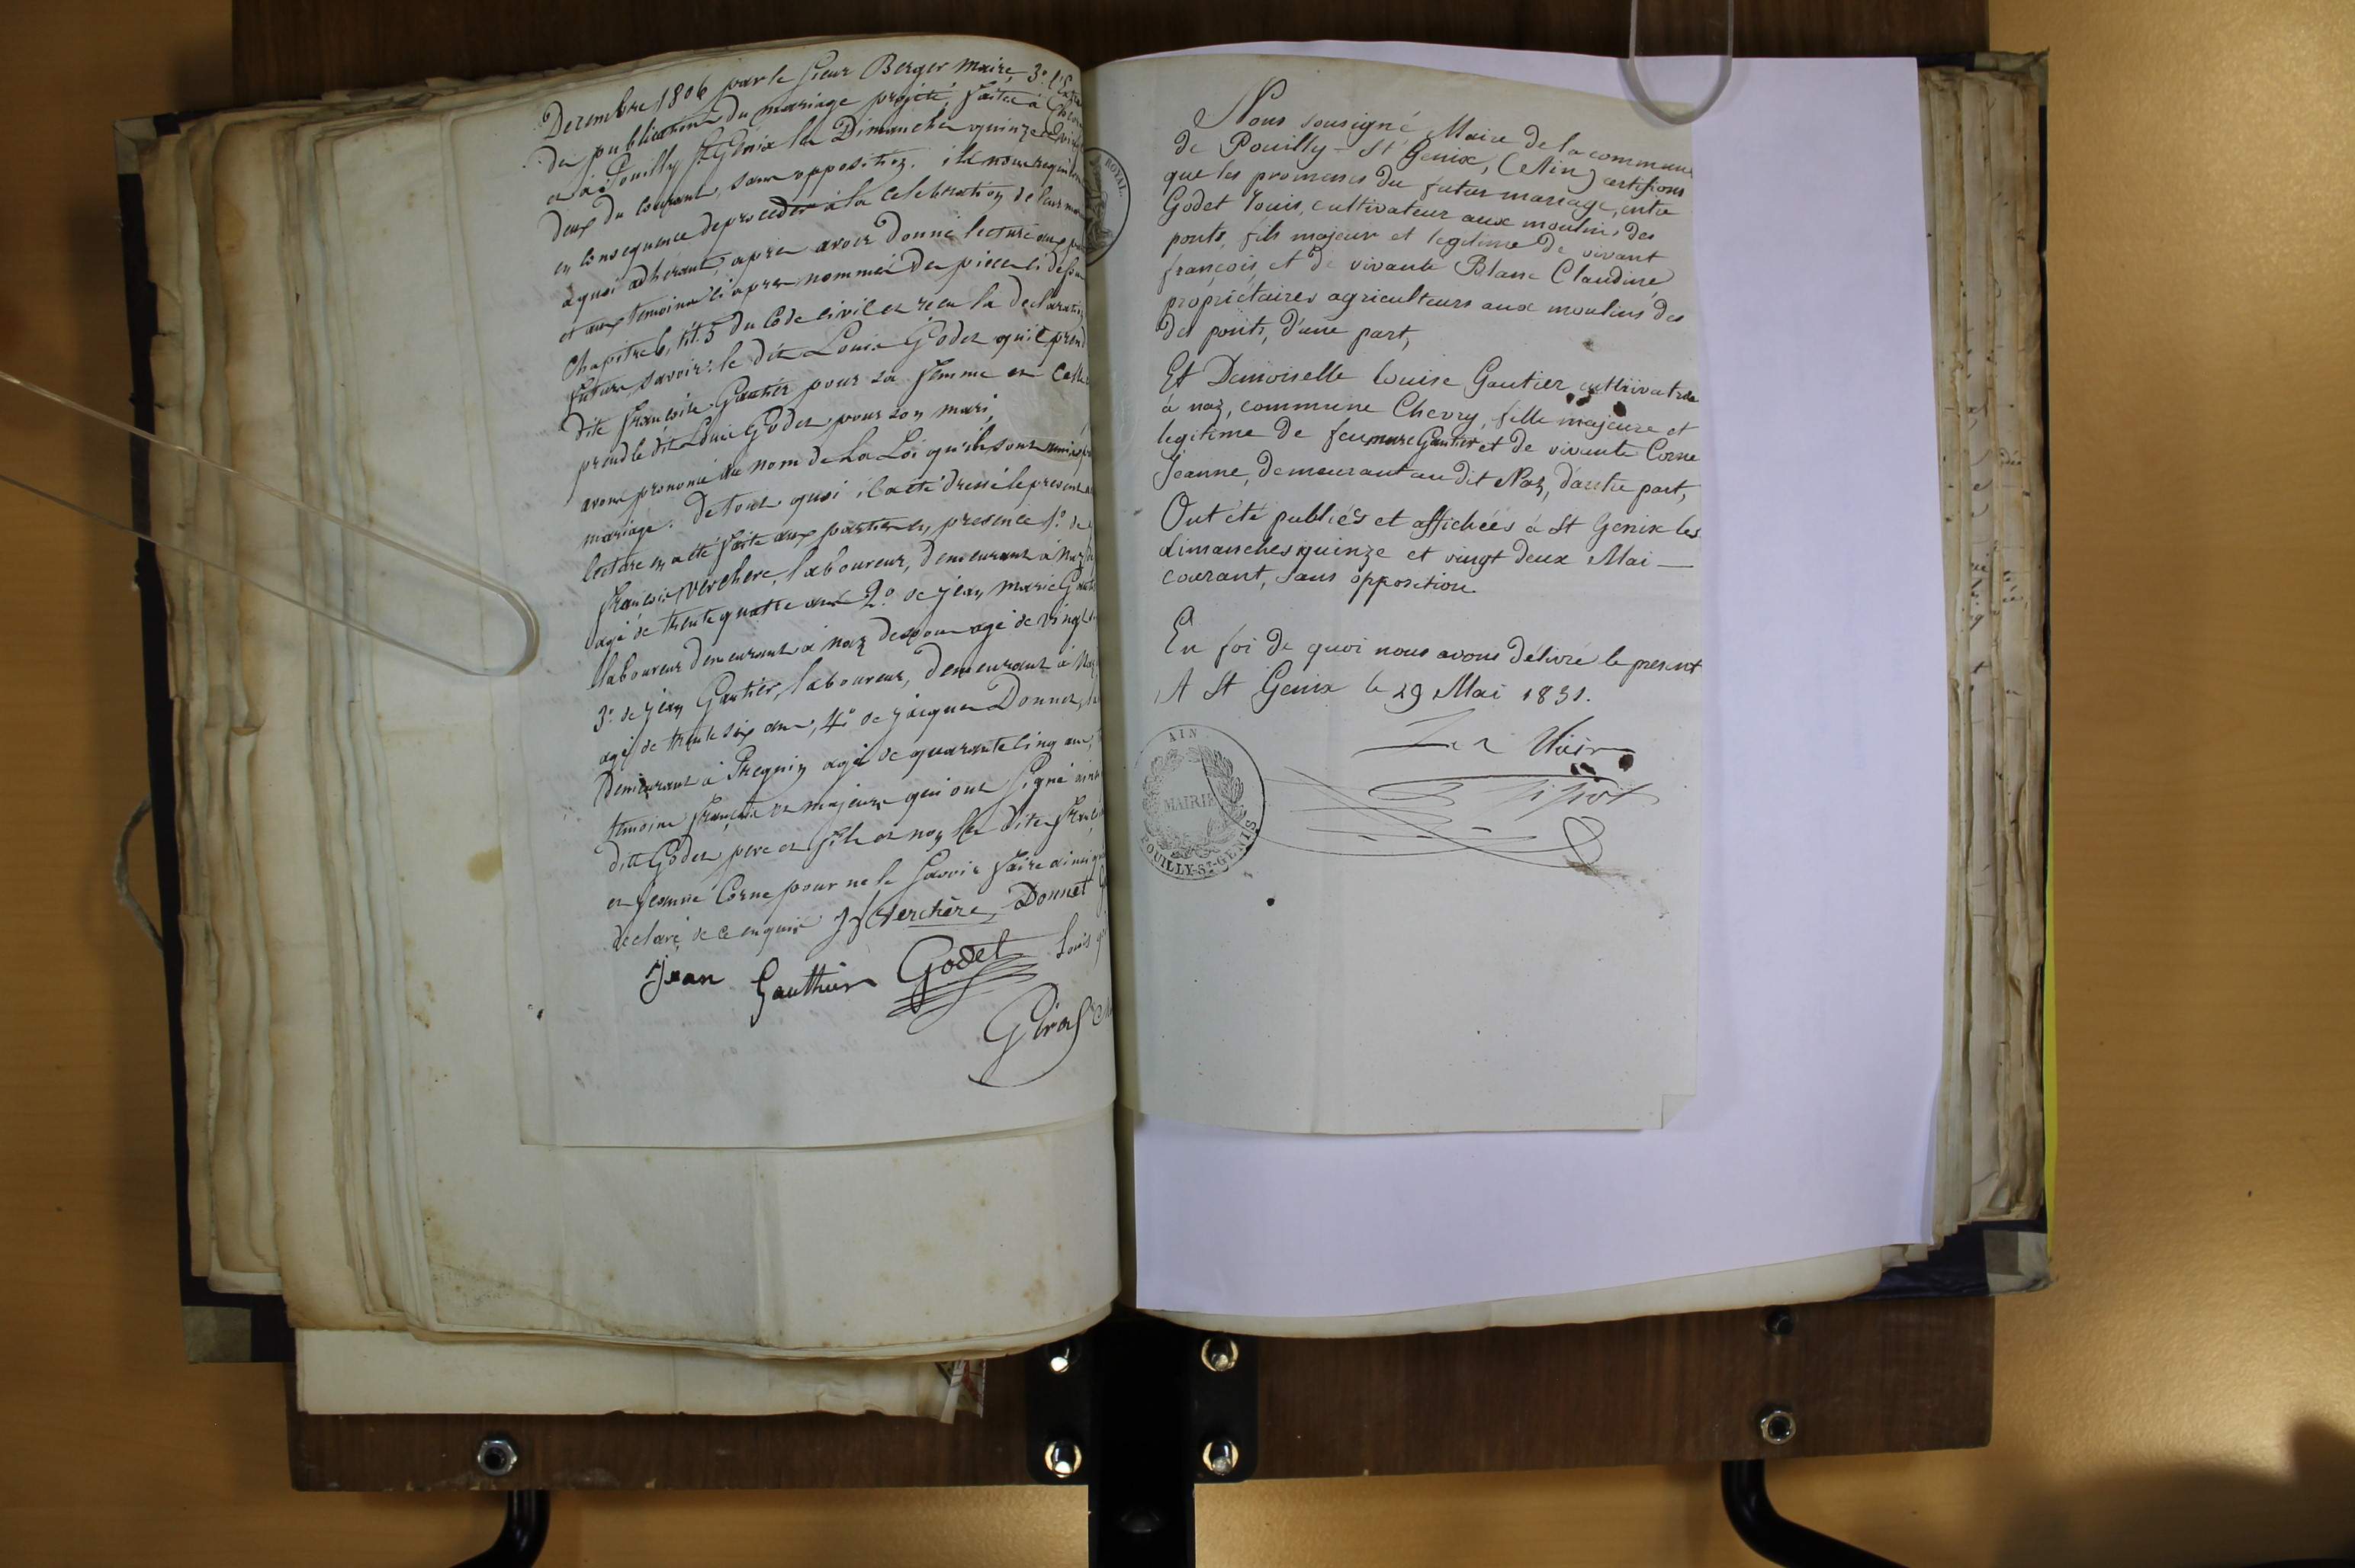 Decembre 1806 par le sieur Berger maire, 3.º
de publication du mariage projeté, faite à
et à Pouilly St Genix les Dimanches quinze et
deux du courant, sans opposition. ils nous
en consequence de proceder à la celebration de leur
a quoi adhérant, apres avoir donné lecture aux
et aux temoins ci apres nommés des pieces ci dessus
Chapitre 6, tit. 5 du Code civil et recu la declaration
future, savoir: le dit Louis Godet qu'il prend
dite Françoise Gautier pour sa femme et celle
prend le dit Louis Godet pour son mari,
avons prononcé au nom de la Loi qu'ils sont unis
mariage. De tout quoi il a été dressé le present
lecture en a été faite aux parties en presence 1.º de
François Verchere, laboureur, demeurant à Naz
agé de trente quatre ans 2.º de jean marie
laboureur demeurant à naz dessous agé de vingt
3.º de jean Gautier, laboureur, demeurant à Naz
agé de trente six ans, 4.º de jacques Donnet,
demeurant à Pregnin agé de quarante cinq ans,
temoins français et majeurs qui ont signé
dits Godet pere et fils et non les dites
et jeanne Corne pour ne le savoir faire ainsi
declaré de ce enquis Verchère, Donnet
Jean Gauthier Godet Louis
Giros
ROYAL
Nous sousigné Maire de la commune
de Pouilly-St Genix, (Ain) certifions
que les promesses du futur mariage, entre
Godet Louis, cultivateur aux moulins des
ponts, fils majeur et legitime de vivant
françois, et de vivante Blanc Claudine
propriétaires agriculteurs aux moulins des
des ponts, d'une part,
Et Demoiselle Louise Gautier cultivatrice
à naz, commune Chevry, fille majeure et
legitime de feu marc Gautier et de vivante Corne
Jeanne, demeurant au dit Naz, d'autre part,
Ont été publiés et affichées à St Genix les
dimanches quinze et vingt deux Mai
courant, sans opposition.
En foi de quoi nous avons délivré le present
A St Genix le 29 Mai 1831.
Le Maire
AIN
MAIRIE
POUILLY-ST-GENIS